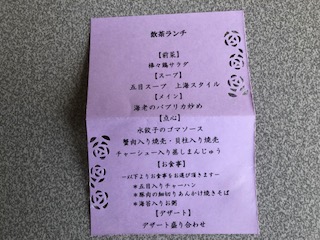 飲茶ランチ
【前菜】
棒々鶏サラダ
【スープ】
五目スープ 上海スタイル
【メイン】
海老のパプリカ炒め
【点心】
水餃子のゴマソース
蟹肉入り焼売・貝柱入り焼売
チャーシュー入り蒸しまんじゅう
【お食事】
～以下よりお食事をお選び頂きます～
＊五目入りチャーハン
＊豚肉の細切りあんかけ焼きそば
＊海苔入りお粥
【デザート】
デザート盛り合わせ